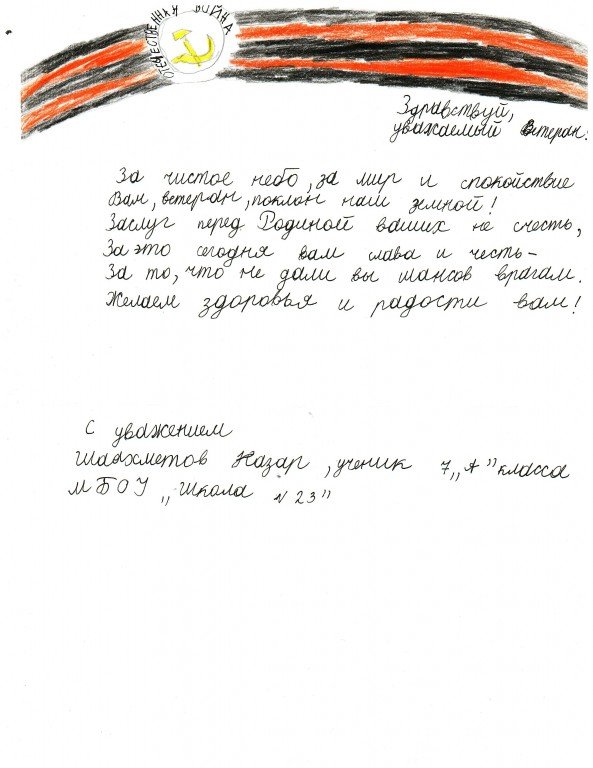 ОТЕЧЕСТВЕННАЯ ВОЙНА
Здравствуй,
уважаемый Ветеран.
За чистое небо, за мир и спокойствие
Вам, ветеран, поклон наш земной!
Заслуг перед Родиной ваших не счесть,
За это сегодня вам слава и честь –
За то, что не дали вы шансов врагам.
Желаем здоровья и радости вам!
С уважением
Шаяхметов Назар, ученик 7 „А” класса
МБОУ „Школа №23”